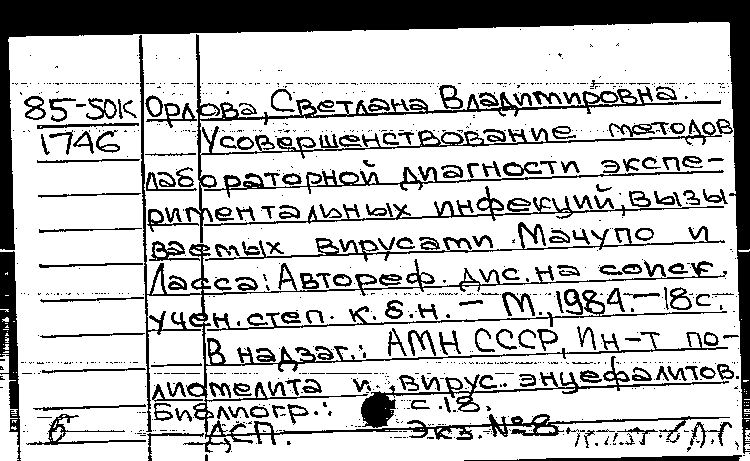 85-50К Орлова, Светлана Владимировна.
1746 Усовершенствование методов
лабораторной диагности экспе-
риментальных инфекций, вызы-
ваемых вирусами Мачупо и
Ласса: Автореф. дис. на соиск.
учен. степ. к.б.н. - М., 1984. - 18 с.
В надзаг.: АМН СССР, Ин-т по-
лиомелита и вирус. энцефалитов.
Библиогр.: с. 18.
б ДСП. Экз. № 8